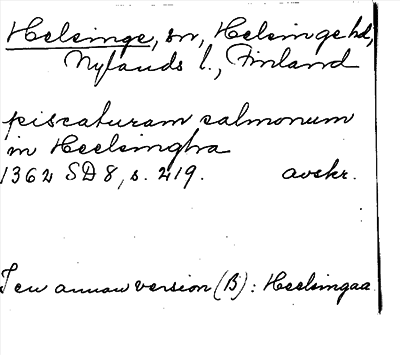 Helsinge, sn, Helsinge hd,
Nylands l., Finland
piscaturam salmonum
in Heelsingha
1362 SD 8, s. 219. avskr.
I en annan version (B): Heelsingaa.